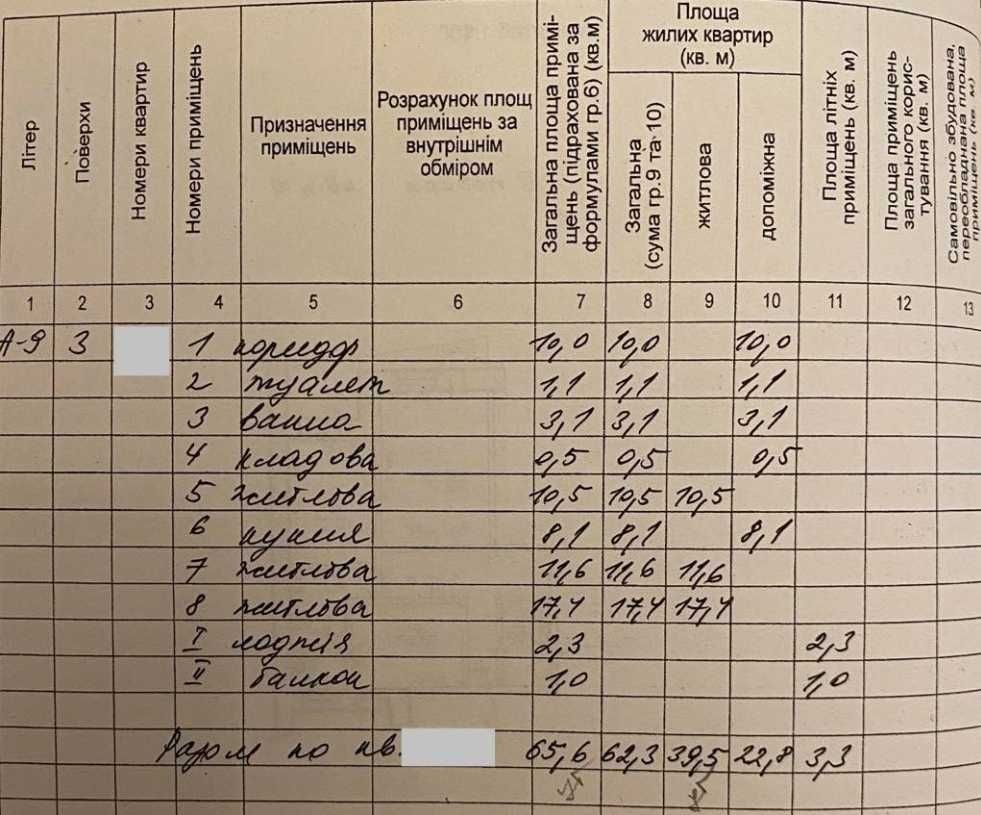 Літер
Поверхи
Номери квартир
Номери приміщень
Призначення приміщень
Розрахунок площ приміщень за внутрішнім обміром
Загальна площа примі-
щень (підрахована за
формулами гр.6) (кв.м
Площа
жилих квартир
(кв. м)
Загальна
(сума гр.9 та 10)
житлова
допоміжна
Площа літніх
приміщень (кв. м)
Площа приміщень
загального корис-
тування (кв. м)
Самовільно збудована,
переобладнана площа
приміщень (кв. м)
1 2 3 4 5 6 7 8 9 10 11 12 13
А-9 3 1 коридор 10,0 10,0 10,0
2 туалет 1,1 1,1 1,1
3 ванна 3,1 3,1 3,1
4 кладова 0,5 0,5 0,5
5 житлова 10,5 10,5 10,5
6 кухня 8,1 8,1 8,1
7 житлова 11,6 11,6 11,6
8 житлова 17,4 17,4 17,4
I лоджія 2,3 2,3
II балкон 1,0 1,0
Разом по кв. 65,6 62,3 39,5 22,8 3,3